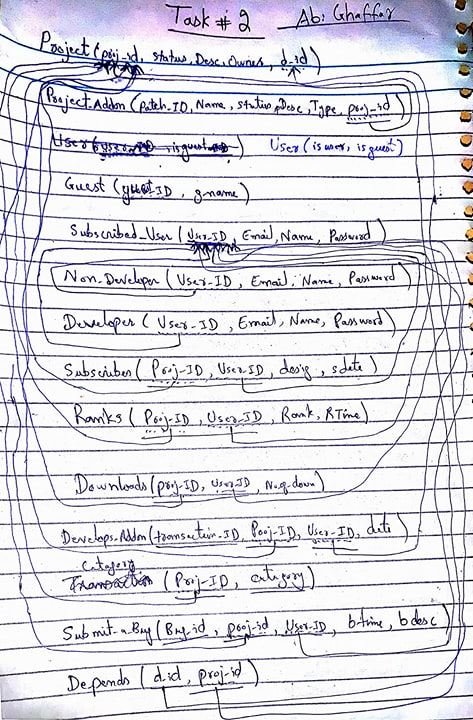 Task # 2 Ab: Ghaffar
Project (proj-id, status, Desc, Owner, d-id)
Project-Addon (Patch-ID, Name, status, Desc, Type, proj-id)
User ( , isguest ) User (is user, is guest)
Guest (guest-ID, g-name)
Subscribed-User (User-ID, Email, Name, Password)
Non-Developer (User-ID, Email, Name, Password)
Developer (User-ID, Email, Name, Password)
Subscribes (Proj-ID, User-ID, desig, sdate)
Ranks (Proj-ID, User-ID, Rank, RTime)
Downloads (proj-ID, User-ID, No.of-down)
Develops-Addon (transection-ID, Proj-ID, User-ID, date)
Category
Transaction (Proj-ID, category)
Submit-a-Bug (Bug-id, proj-id, User-ID, b-time, b desc)
Depends (d-id, proj-id)